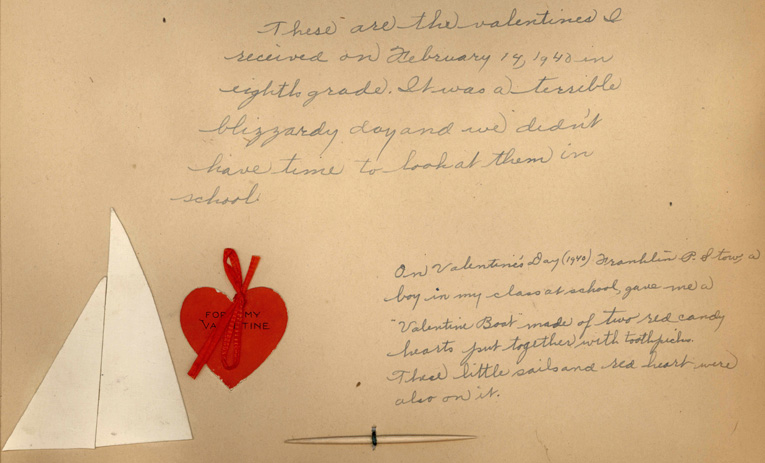 These are the valentines I
received on February 14, 1940 in
eighth grade. It was a terrible
blizzardy day and we didn't
have time to look at them in
school.
FOR MY
VALENTINE
On Valentine's Day (1940) Franklin P. Stow, a
boy in my class at school, gave me a
"Valentine Boat" made of two red candy
hearts put together with toothpicks.
These little sails and red heart were
also on it.